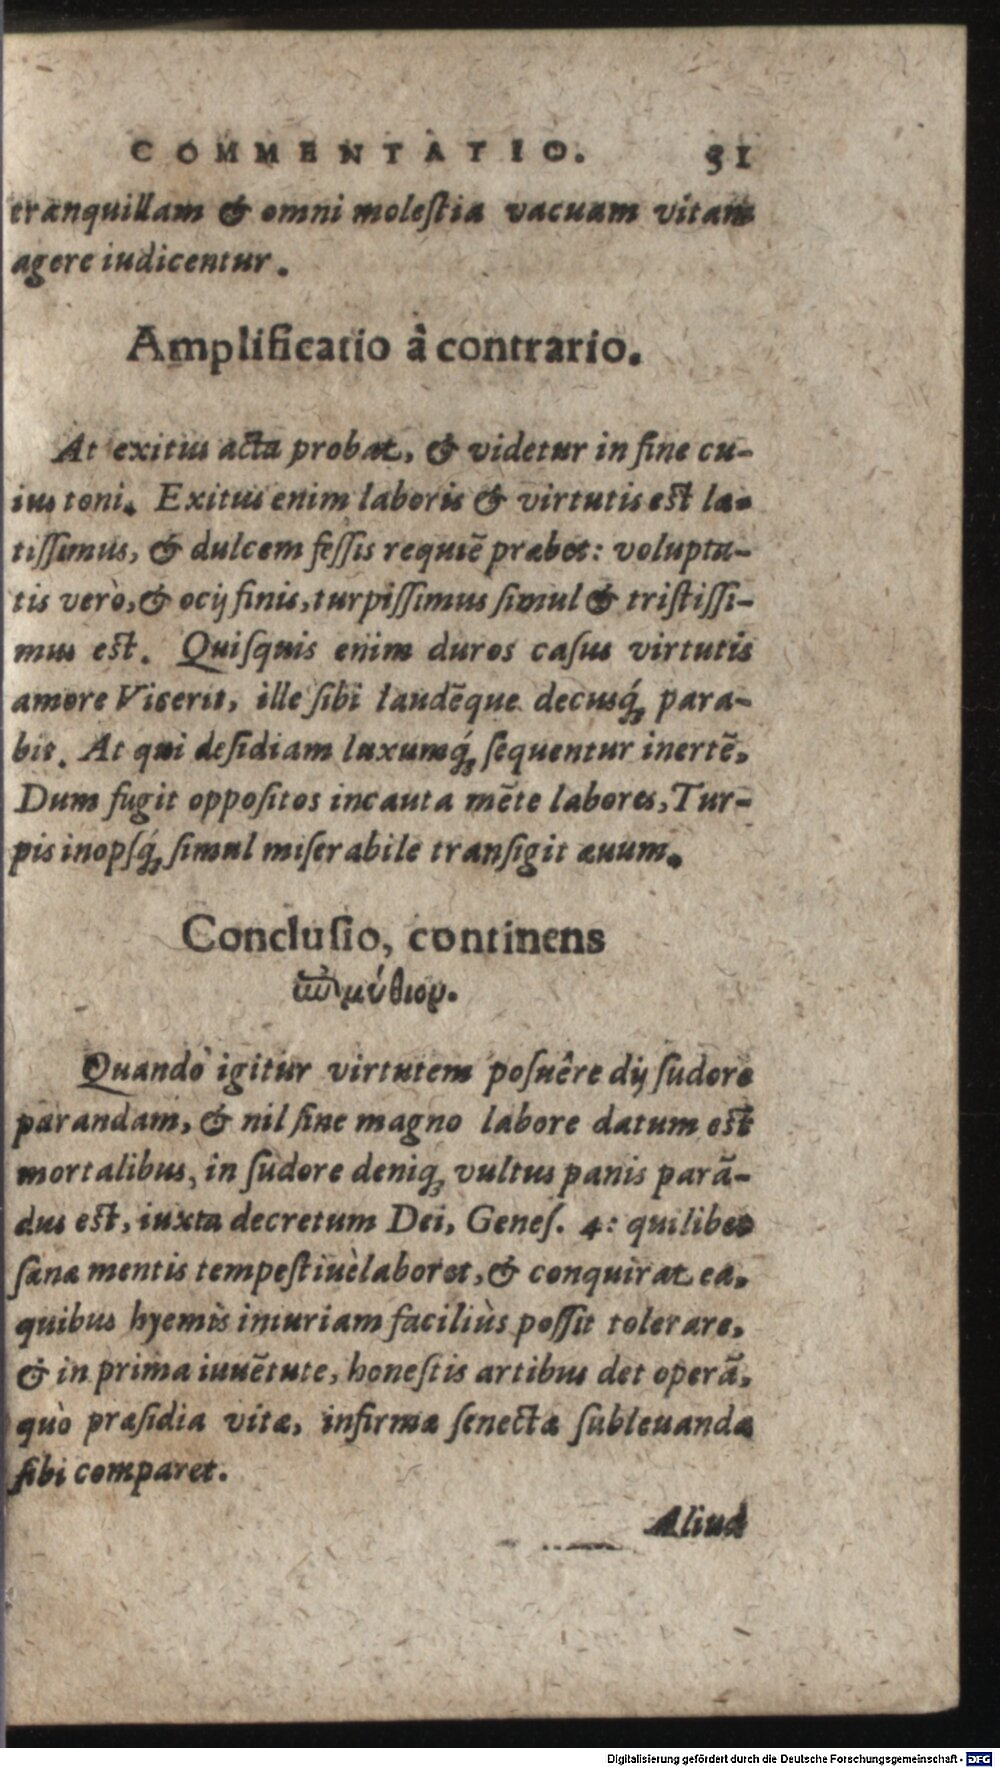 COMMENTATIO. 31
tranquillam & omni molestia vacuam vitam
agere iudicentur.
Amplificatio à contrario.
At exitus acta probat, & videtur in fine cu-
ius toni. Exitus enim laboris & virtutis est læ-
tissimus, & dulcem fessis requiē præbet: volupta-
tis verò, & ocij finis, turpissimus simul & tristissi-
mus est. Quisquis enim duros casus virtutis
amore Vicerit, ille sibi laudēque decusq́; para-
bit. At qui desidiam luxumq́; sequentur inertē,
Dum fugit oppositos incauta mēte labores, Tur-
pis inopsq́; simul miserabile transigit æuum.
Conclusio, continens
ἐπιμύθιον.
Quando igitur virtutem posuêre dij sudore
parandam, & nil sine magno labore datum est
mortalibus, in sudore deniq; vultus panis parā-
dus est, iuxta decretum Dei, Genes. 4: quilibet
sanæ mentis tempestiuè laboret, & conquirat ea,
quibus hyemis iniuriam faciliùs possit tolerare,
& in prima iuuētute, honestis artibus det operā,
quò præsidia vitæ, infirmæ senectæ subleuandæ
sibi comparet.
Aliud
Digitalisierung gefördert durch die Deutsche Forschungsgemeinschaft - DFG